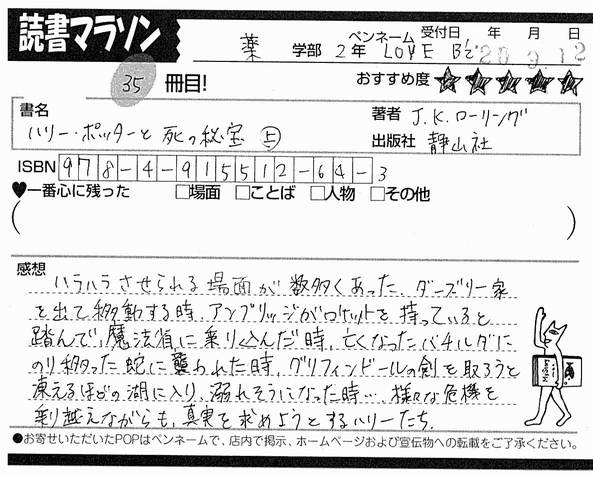 読書マラソン
薬 学部 2年 ペンネーム LOVE B'z 受付日 年 月 日
20 9.12
35 冊目!
おすすめ度 ★★★★★
書名
ハリー・ポッターと 死の秘宝 上
著者 J.K.ローリング
出版社 静山社
ISBN 978-4-915512-64-3
♥一番心に残った □場面 □ことば □人物 □その他
( )
感想
ハラハラさせられる場面が数多くあった。ダーズリー家
を出て移動する時、アンブリッジがロケットを持っていると
踏んで、魔法省に乗り込んだ時、亡くなったバチルダに
のり移った蛇に襲われた時、グリフィンドールの剣を取ろうと
凍えるほどの湖に入り、溺れそうになった時…、様々な危機を
乗り越えながらも、真実を求めようとするハリーたち。
●お寄せいただいたPOPはペンネームで、店内で掲示、ホームページおよび宣伝物への転載をご了承ください。